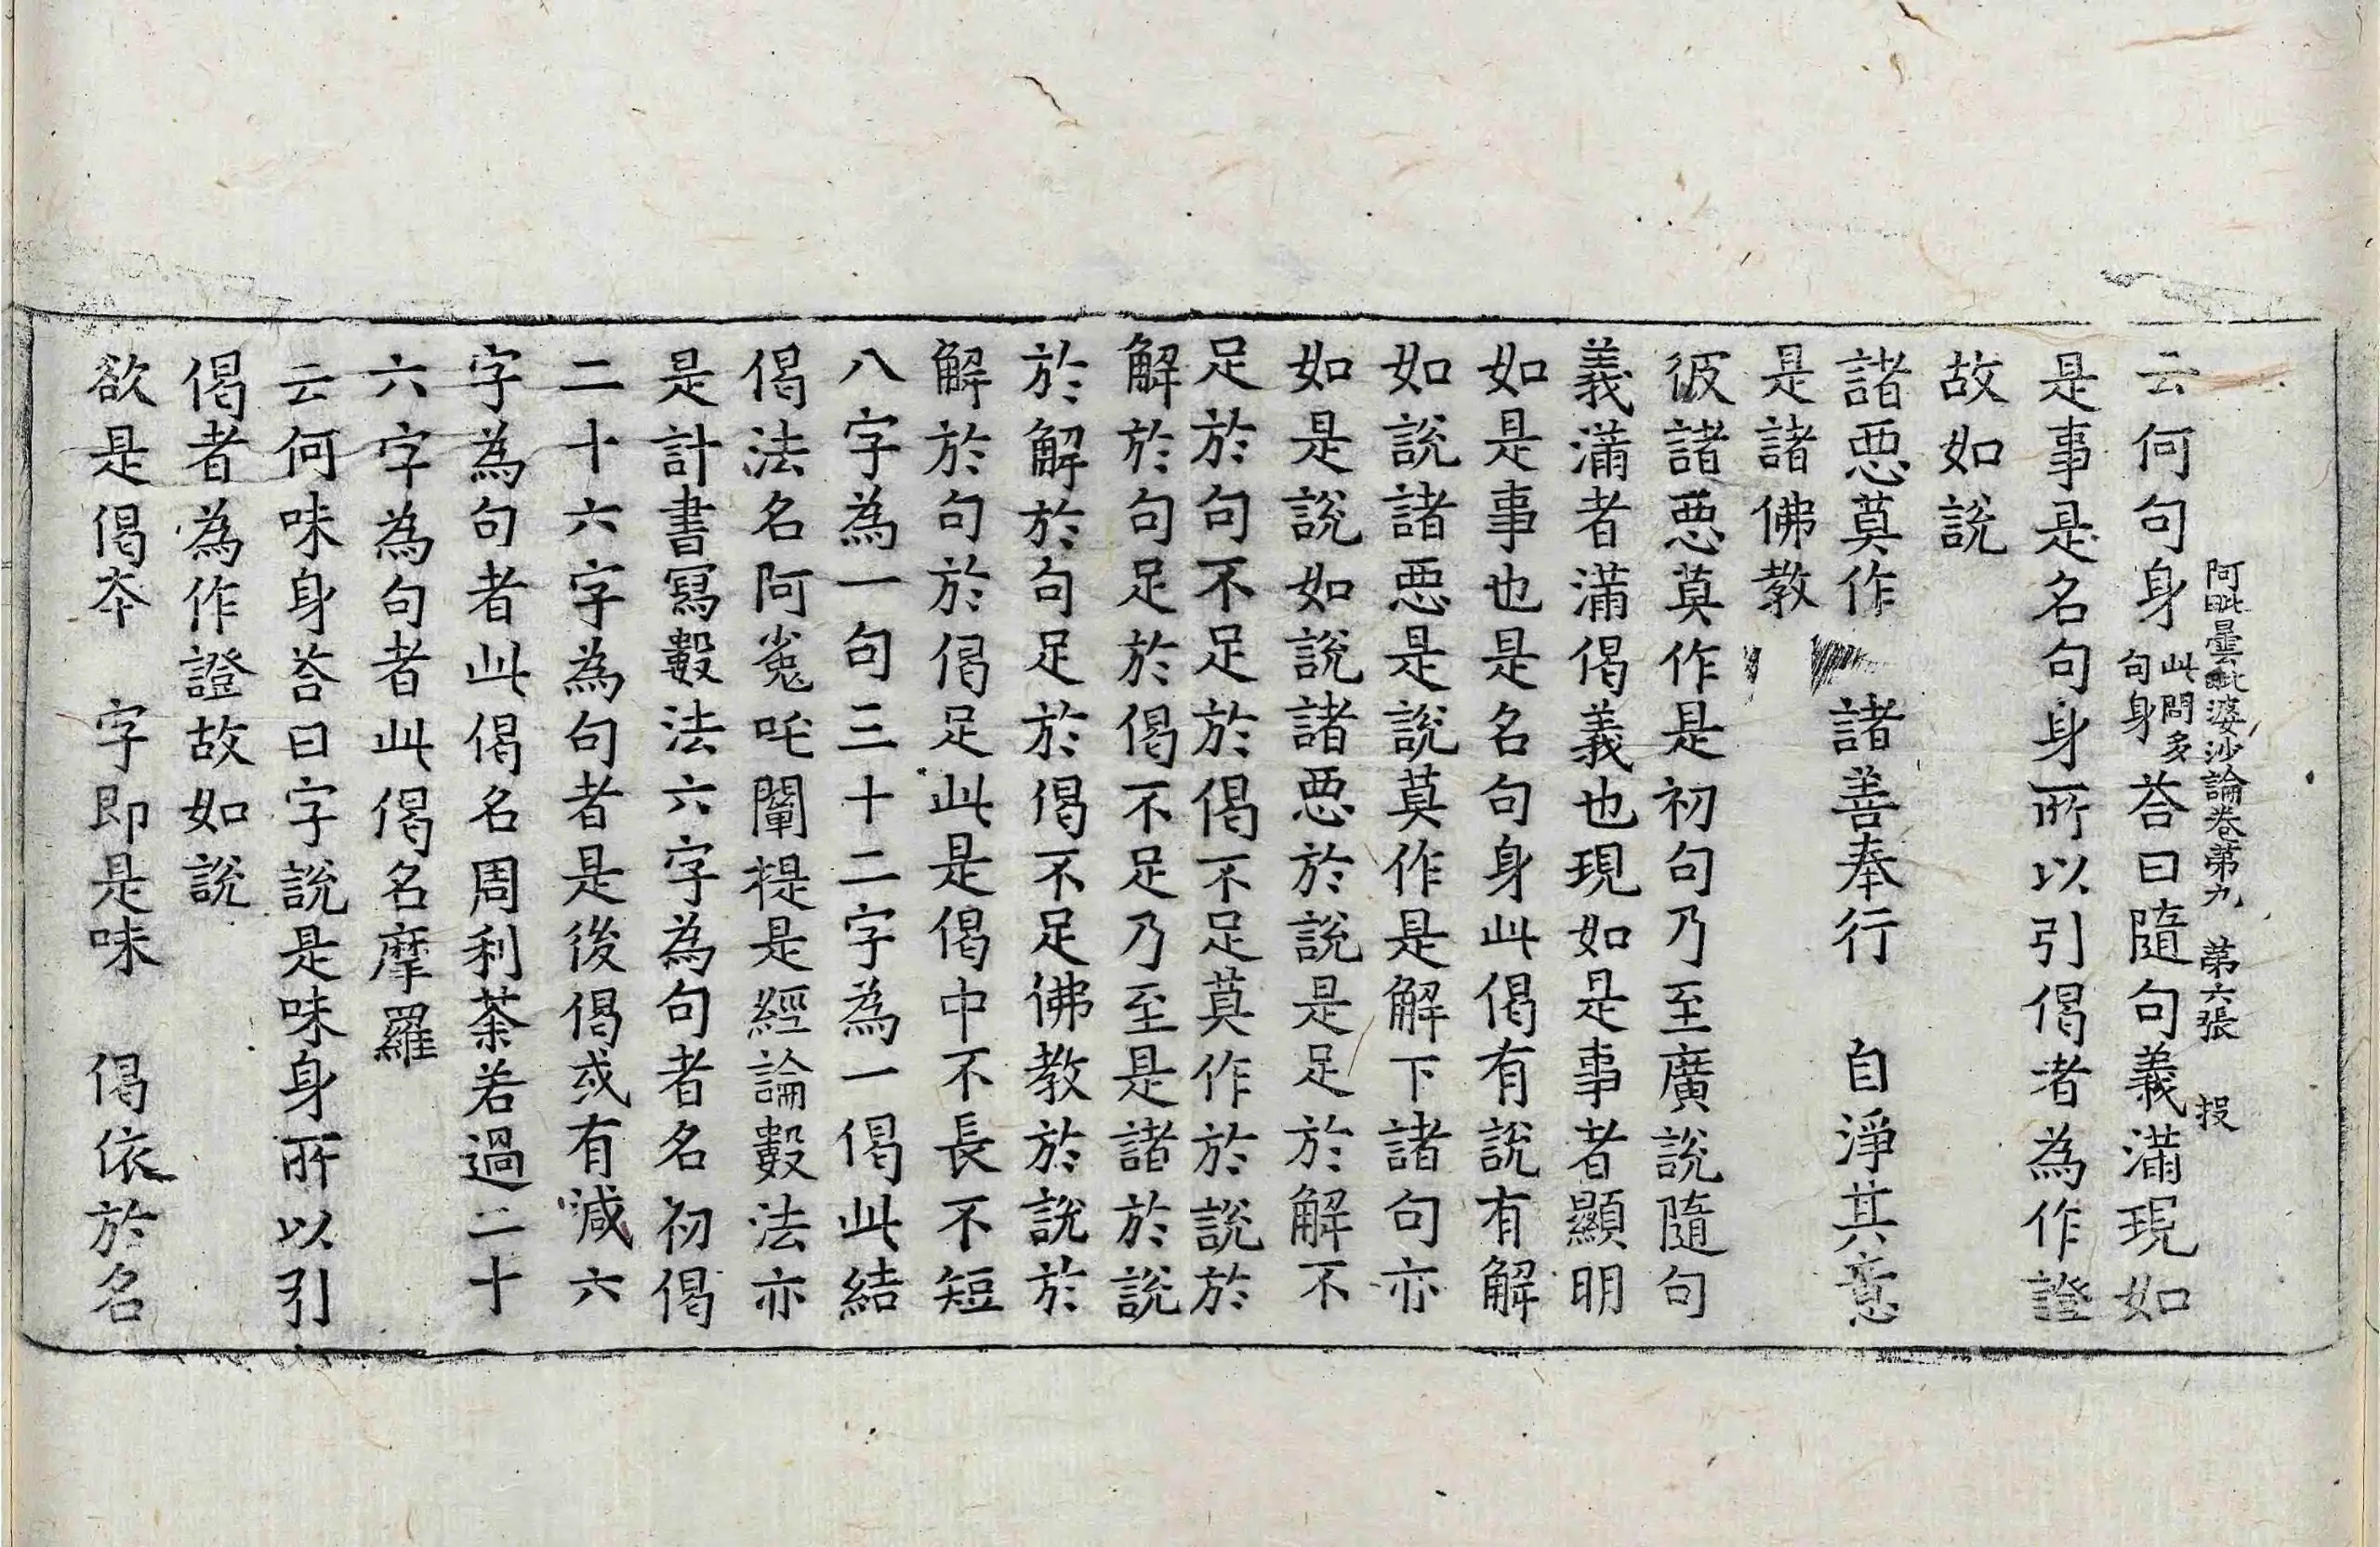 阿毗曇毗婆沙論卷第九 第六張 投
云何句身此問多句身荅曰隨句義滿現如
是事是名句身所以引偈者為作證
故如說
諸惡莫作 諸善奉行 自淨其意
是諸佛教
彼諸惡莫作是初句乃至廣說隨句
義滿者滿偈義也現如是事者顯明
如是事也是名句身此偈有說有解
如說諸惡是說莫作是解下諸句亦
如是說如說諸惡於說是足於解不
足於句不足於偈不足莫作於說於
解於句足於偈不足乃至是諸於說
於解於句足於偈不足佛教於說於
解於句於偈足此是偈中不長不短
八字為一句三十二字為一偈此結
偈法名阿㝹吒闡提是經論數法亦
是計書寫數法六字為句者名初偈
二十六字為句者是後偈或有減六
字為句者此偈名周利荼若過二十
六字為句者此偈名摩羅
云何味身荅曰字說是味身所以引
偈者為作證故如說
欲是偈夲 字即是味 偈依於名